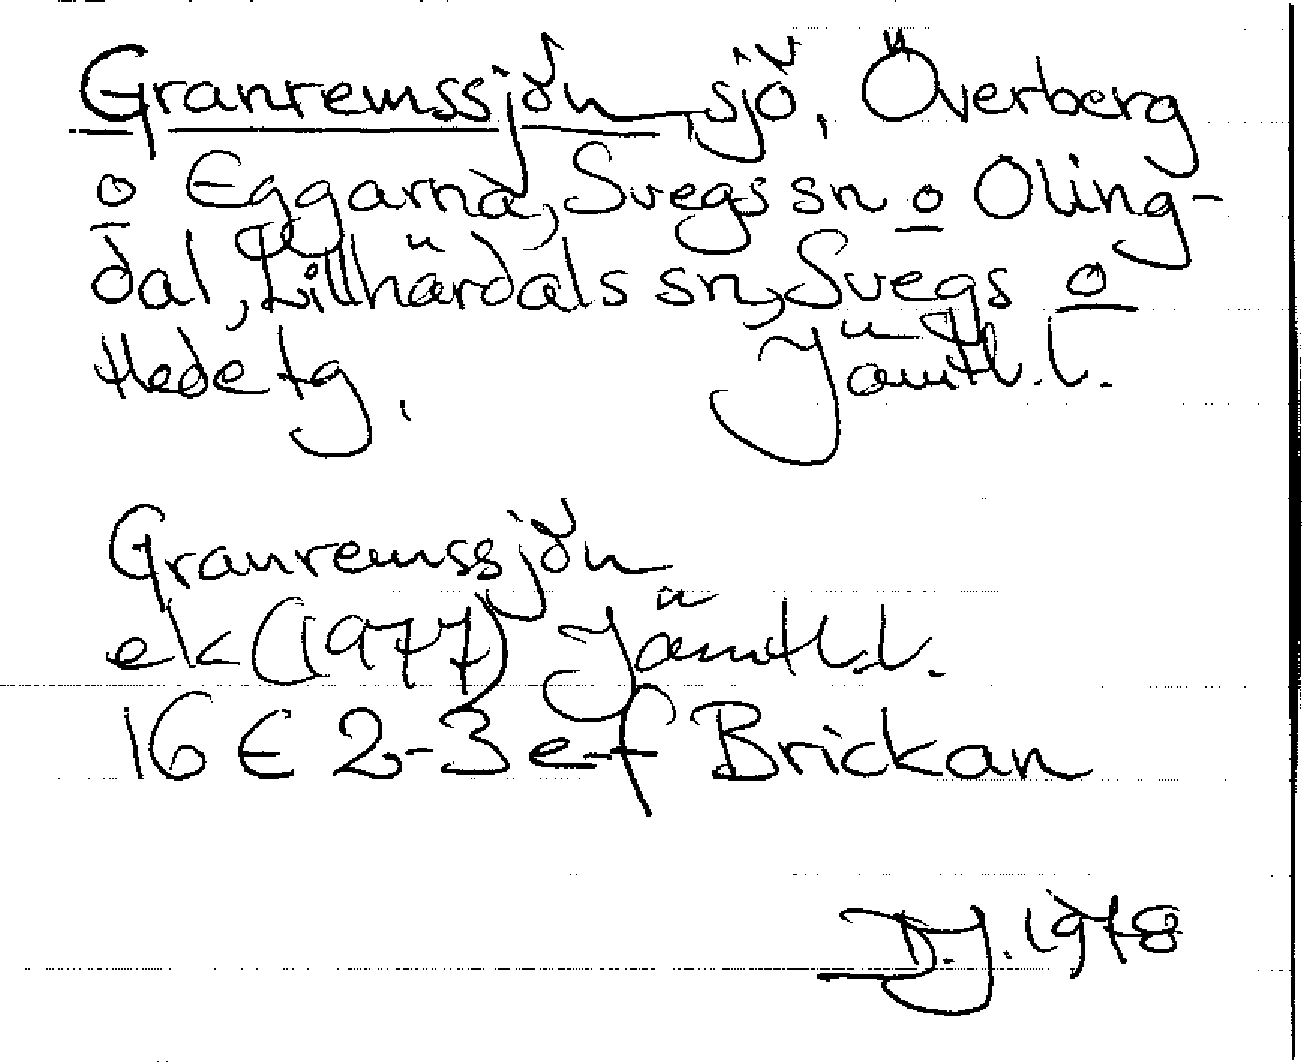 Granremssjön, sjö, Överberg
o Eggarna, Svegs sn o Oling-
dal, Lillhärdals sn, Svegs o
Hede tg, Jämtl. l.
Granremssjön
ek (1977) Jämtl. l.
16 E 2-3 e-f Brickan
D.J. 1978